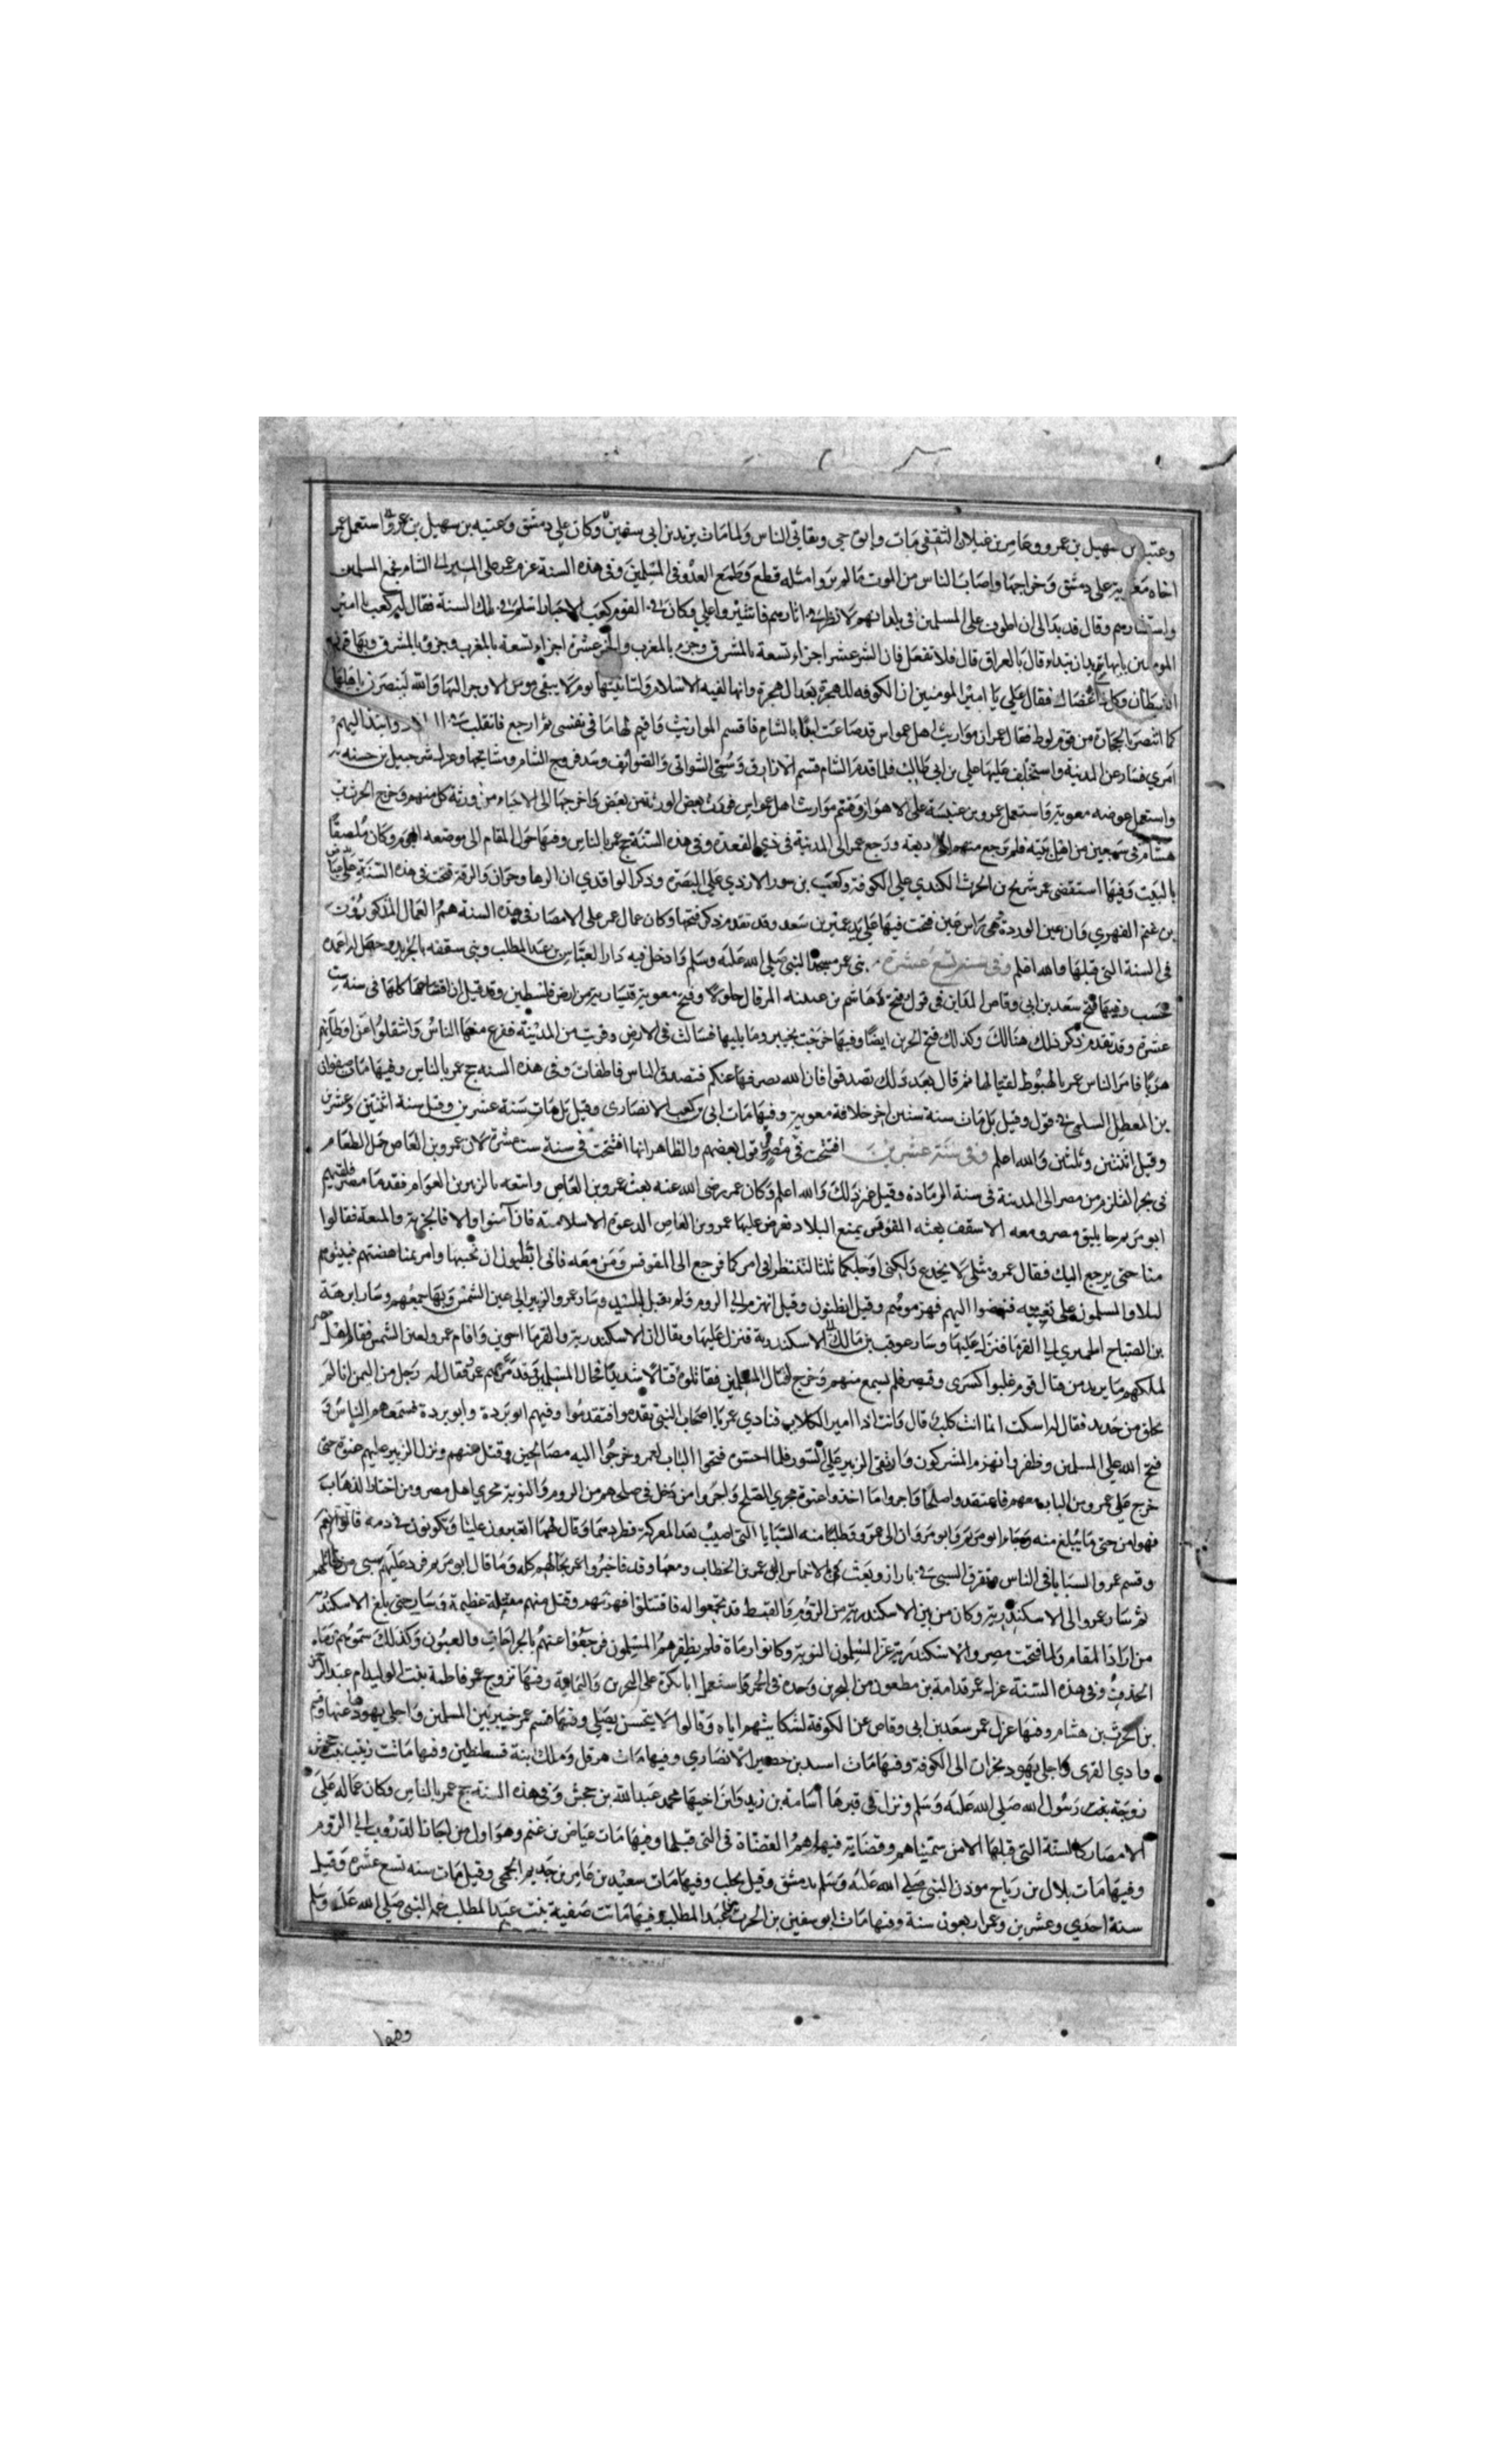 وعتبة بن سهيل بن عمرو وعامر بن غيلان الثقفي مات وابوه حي وبقايا في الناس ولما مات يزيد بن ابي سفين وكان علي دمشق وعتبه بن سهيل بن عمرو استعمل عمر
اخاه معوية على دمشق وخراجها واصاب الناس من الموت ما لم يروا مثله قطع وطمع العدو في المسلمين وفي هذه السنة عزم عمر على المسير الى الشام فجمع المسلمين
واستشارهم وقال قد بدا لى ان اطوف على المسلمين في بلدانهم لانظر في اثارهم فاشيروا علي وكان في القوم كعب الاحبار اسلم في تلك السنة فقال كعب يا امير
المومنين بايها تريد ان تبتداء قال بالعراق قال فلا تفعل فان الشر عشر اجزاء تسعة بالمشرق وجزء بالمغرب والخير عشرة اجزاء تسعة بالمغرب وجزؤ بالمشرق وبها قرن
الشيطان وكل داء عضال فقال علي يا امير المومنين ان الكوفه للهجرة بعد الهجرة وانها لقبه الاسلام ولتاتينها يوم لا يبقي مومن الا وحن اليها والله لينصرن باهلها
كما انتصر بالحجارة من قوم لوط فقال عمر ان مواريث اهل عمواس قد ضاعت ابدا بالشام فاقسم المواريث واقيم لهم ما في نفسى ثم ارجع فاتقلب في البلاد وابتدا اليهم
امري فسار عن المدينة واستخلف عليها علي بن ابي طالب فلما قدم الشام قسم الارزاق وسمى الشواتى والصوائف وسد فروج الشام ومسالحها وعزل شرحبيل بن حسنه
واستعمل عوضه معوية واستعمل عمرو بن عنبسة على الاهواز وقسم مواريث اهل عمواس فورث بعض الورثة من بعض واخرجها الى الاحياء من ورثة كل منهم وخرج الحرث بن
هشام فى سبعين من اهل بيته فلم يرجع منهم الا اربعه ورجع عمر الى المدينة فى ذي القعدة وفى هذه السنة حج عمر بالناس وفيها حول المقام الى موضعه اليوم وكان ملصقا
بالبيت وفيها استقضى عمر شريح بن الحرث الكندي علي الكوفة وكعب بن سور الازدي علي البصرة وذكر الواقدي ان الرها وحران والرقة فتحت فى هذه السنة على يد عياض
بن غنم الفهري وان عين الوردة وهى راس عين فتحت فيها على يد عمير بن سعد وقد تقدم ذكر فتحها وكان عمال عمر على الامصار في هذه السنة هم العمال المذكورون
في السنة التى قبلها والله اعلم وفى سنة تسع عشرة بنى عمر مسجد النبى صلي الله عليه وسلم وادخل فيه دار العباس بن عبد المطلب وبنى سقفه بالجريد وجعل له اعمدة
خشب وفيها فتح سعد بن ابي وقاص المداين في قول وفتح هاشم بن عتبة المرقال جلولا وفتح معوية قيسارية من ارض فلسطين وقد قيل ان افتتاحها كلها في سنة ست
عشرة وقد تقدم ذكر ذلك هنالك وكذلك فتح الحرين ايضا وفيها خرجت بخيبر وما يليها فسالت في الارض وقربت من المدينة ففزع منها الناس وانتقلوا عن اوطانهم
هربا فامر الناس عمر بالهبوط لقتالها ثم قال بعد ذلك تصدقوا فان الله يصرفها عنكم فتصدق الناس فاطفات وفى هذه السنه حج عمر بالناس وفيها مات صفوان
بن المعطل السلمى في قول وقيل بل مات سنة ستين اخر خلافة معوية وفيها مات ابى بن كعب الانصارى وقيل بل مات سنة عشرين وقيل سنة اثنتين وعشرين
وقيل اثنتين وثلثين والله اعلم وفى سنة عشرين افتتحت فى مصر في قول بعضهم والظاهر انها افتتحت فى سنة ست عشرة لان عمرو بن العاص حمل الطعام
فى بحر القلزم من مصر الى المدينة فى سنة الرمادة وقيل غير ذلك والله اعلم وكان عمر رضى الله عنه بعث عمرو بن العاص واتبعه بالزبير بن العوام فقدما مصر فلقيهم
ابو مريم جاثليق مصر ومعه الاسقف بعثه المقوقس بمنع البلاد فعرض عليها عمرو بن العاص الدعوة الاسلامية فان آمنوا والا فالجزية والمنعة فقالوا
منا حتى نرجع اليك فقال عمرو مثلى لا يخدع ولكنى اوجلكما ثلثا لتنظرا فى امركما فرجع الى المقوقس ومن معه فابى اطبون ان يجيبها وامر بمناهضتهم فبيتوهم
ليلا والمسلمون على تعبيه فنهضوا اليهم فهزموهم وقيل اطبون وقيل انهزم الى الروم ولم يقبل المسير وسار عمرو والزبير الى عين الشمس وبها جمعهم وسار ابرهة
بن الصباح الحميري الى الفرما فنزل عليها وسار عوف بن مالك الى الاسكندرية فنزل عليها ويقال ان الاسكندرية والفرما اخوين واقام عمرو بعين الشمس فقال اهل مصر
لملكهم ما يريد من قتال قوم غلبوا كسرى وقيصر فلم يسمع منهم وخرج لقتال المسلمين فقاتلوه قتالا شديدا فجال المسلمين فذمرهم عمرو فقال له رجل من اليمن انا لم
نخلق من حديد فقال له اسكت انما انت كلب قال فانت اذا امير الكلاب فنادي عمرو يا اصحاب النبى تقدموا فتقدموا وفيهم ابو بردة وابو بردة فتبعهم الناس و
فتح الله على المسلمين وظفروا وانهزم المشركون وارتقى الزبير على السور فلما احسوه فتحوا الباب لعمرو وخرجوا اليه مصالحين وقتل منهم ونزل الزبير عليهم عنوة حتى
خرج على عمرو من الباب معهم فاعتقدوا صلحا واجروا ما اخذوا عنوة مجري الصلح واجروا من دخل في صلحهم من الروم والنوبة مجري اهل مصر ومن اختار الذهاب
فهو امن حتى ما يبلغ منه وجاء ابو مريم وابو مريام الى عمرو وطلبا منه السبايا التى اصيب بعد المعركة فطردهما وقال لهما اتغيرون علينا وتكونون في ذمه قالوا نعم
وقسم عمرو السبايا في الناس وتفرق السبى في بلدان وبعث بالاخماس الى عمر بن الخطاب ومعها وفد فاخبروا عمر بحالهم كله وما قال ابو مريم فرد عليهم سبى من قاتلهم
ثم سار عمرو الى الاسكندرية وكان من بين الاسكندرية من الروم والقبط قد تجمعوا له فاقتتلوا فهزمهم وقتل منهم مقتلة عظيمة وسار حتى بلغ الاسكندرية
من اراد المقام ولما فتحت مصر والاسكندرية غزا المسلمون النوبة وكانوا رماة فلم يظفر هم المسلمون فرجعوا عنهم بالجراحات والعيون وكذلك سموهم رماة
الحدق وفى هذه السنة عزل عمر قدامة بن مظعون من البحرين وحده فى الخمر واستعمل ابا بكرة على البحرين واليمامة وفيها تزوج عمر فاطمة بنت الوليد ام عبد الرحمن
بن الحرث بن هشام وفيها عزل عمر سعد بن ابى وقاص عن الكوفة لشكايتهم اياه وقالوا لا يحسن يصلي وفيها قسم عمر خيبر بين المسلمين واجلى يهودها عنها وقسم
وادي القرى واجلى يهود نجران الى الكوفة وفيها مات اسيد بن حضير الانصاري وفيها مات هرقل وملك ابنه قسطنطين وفيها ماتت زينب بنت جحش
زوجة بنت رسول الله صلي الله عليه وسلم ونزل فى قبرها اسامة بن زيد وابن اخيها محمد بن عبد الله بن جحش وفى هذه السنة حج عمر بالناس وكان عماله على
الامصار كالسنة التى قبلها الا من سميناهم وقضاته فيها هم القضاة فى التى قبلها وفيها مات عياض بن غنم وهو اول من اجاز الدروب الى الروم
وفيها مات بلال بن رباح موذن النبى صلي الله عليه وسلم بدمشق وقيل بحلب وفيها مات سعيد بن عامر بن حذيم الجمحي وقيل مات سنه تسع عشرة وقيل
سنة احدي وعشرين وعمره اربعون سنة وفيها مات ابو سفين بن الحرث بن عبد المطلب وفيها ماتت صفية بنت عبد المطلب عمة النبى صلي الله عليه وسلم
وفيها